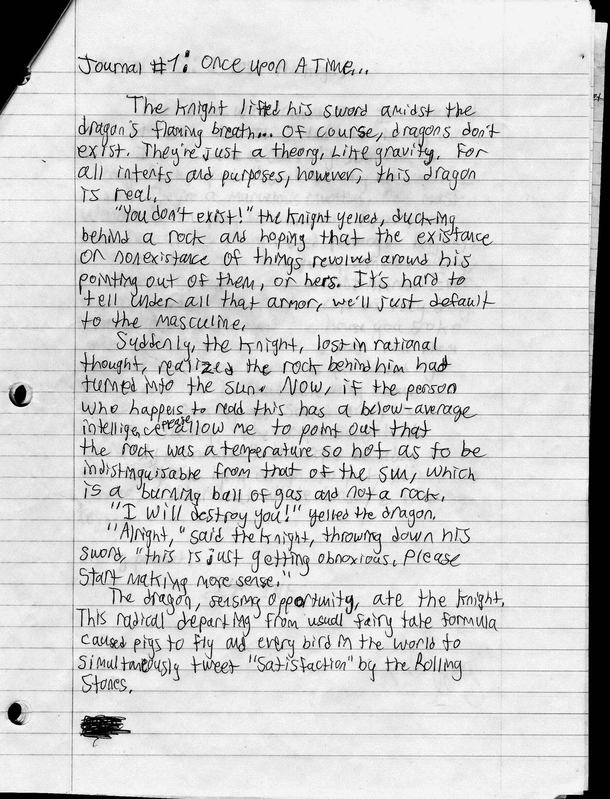 Journal #1: Once upon A Time...
The knight lifted his sword amidst the
dragon's flaming breath... Of course, dragons don't
exist. They're just a theory, Like gravity. For
all intents and purposes, however, this dragon
is real.
"You don't exist!" the knight yelled, ducking
behind a rock and hoping that the existance
or nonexistance of things revolved around his
pointing out of them, or hers. It's hard to
tell under all that armor, we'll just default
to the masculine.
Suddenly, the knight, lost in rational
thought, realized the rock behind him had
turned into the sun. Now, if the person
who happens to read this has a below-average
intelligence please allow me to point out that
the rock was a temperature so hot as to be
indistinguisable from that of the sun, which
is a burning ball of gas and not a rock.
"I will destroy you!" yelled the dragon.
"Alright," said the knight, throwing down his
sword, "this is just getting obnoxious. Please
start making more sense."
The dragon, sensing opportunity, ate the knight.
This radical departing from usual fairy tale formula
caused pigs to fly and every bird in the world to
simultaneously tweet "Satisfaction" by the Rolling
Stones.